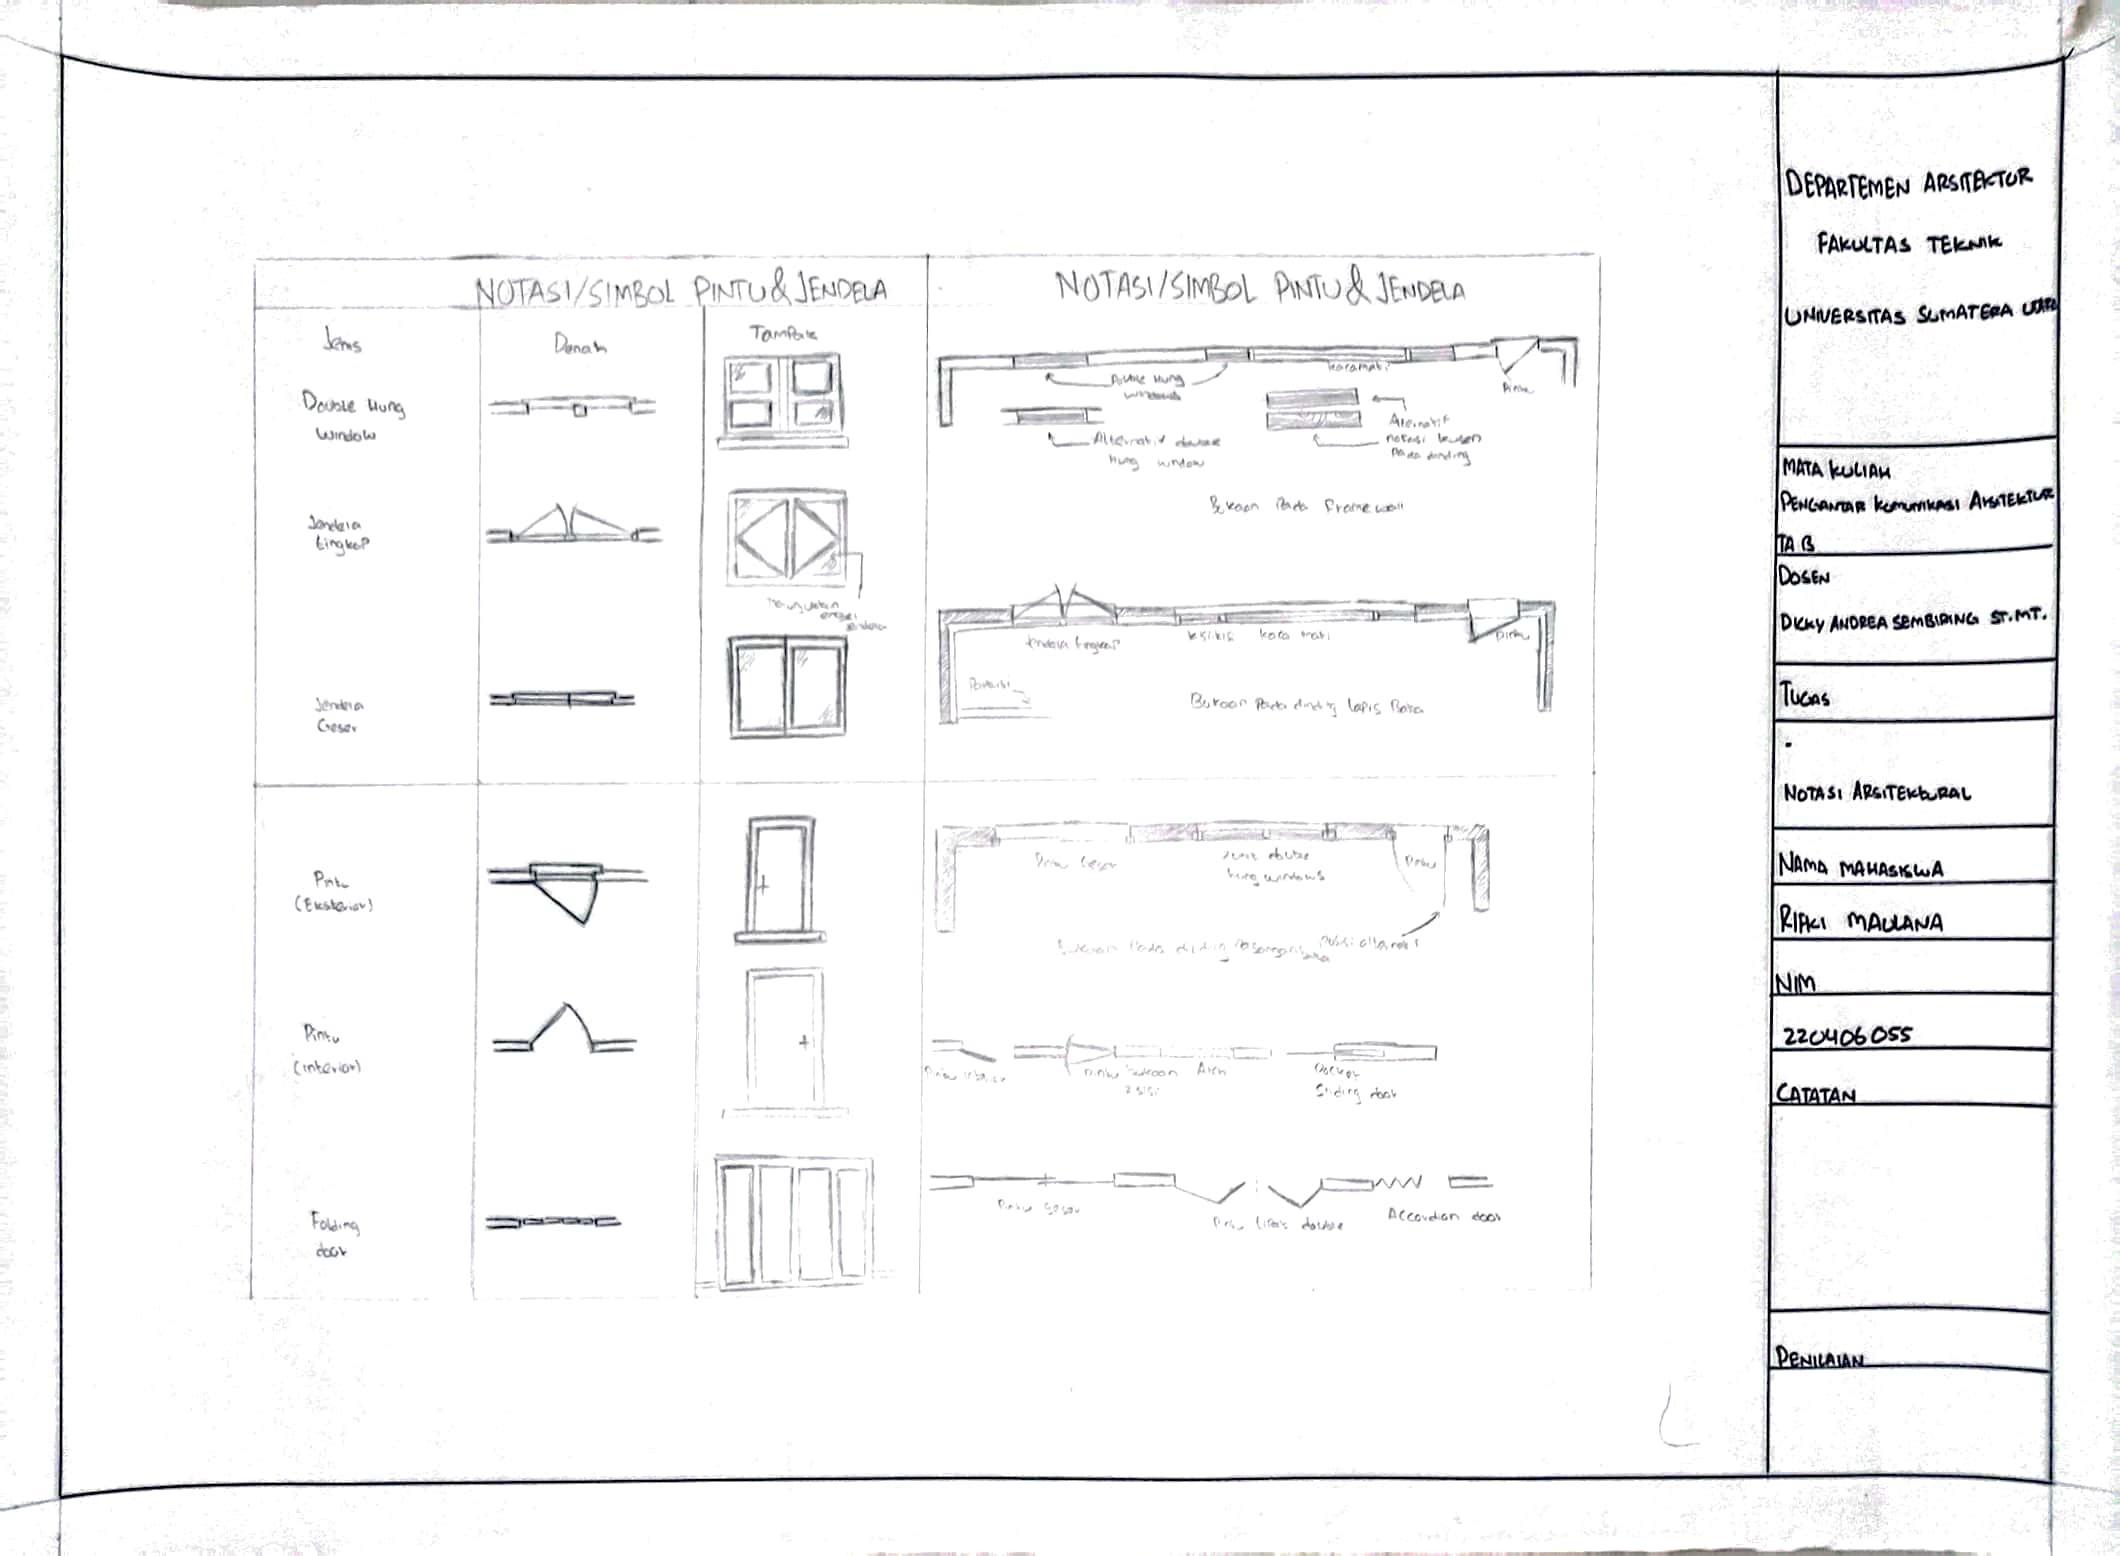 NOTASI/SIMBOL PINTU & JENDELA
Jenis
Denah
Tampak
Double Hung
Window
Jendela
tingkap
Menunjukkan
engsel
jendela
Jendela
Geser
Pintu
(Eksterior)
Pintu
(interior)
Folding
door
NOTASI/SIMBOL PINTU & JENDELA
Double Hung
windows
kaca mati
Pintu
Alternatif double
Hung window
Alternatif
notasi kusen
pada dinding
Bukaan Pada Frame wall
Jendela tingkap
kaca mati
Pintu
Partisi
Bukaan Pada dinding lapis Bata
Pintu Geser
double
hung windows
Pintu
Bukaan Pada dinding Pasangan bata
Posisi alternatif
Pintu interior
Pintu bukaan
2 sisi
Arch
Pocket
Sliding door
Pintu Geser
Pintu lipat double
Accordian door
DEPARTEMEN ARSITEKTUR
FAKULTAS TEKNIK
UNIVERSITAS SUMATERA UTARA
MATA KULIAH
PENGANTAR KOMUNIKASI ARSITEKTUR
TA B
DOSEN
DICKY ANDREA SEMBIRING ST.MT.
TUGAS
NOTASI ARSITEKTURAL
NAMA MAHASISWA
RIFKI MAULANA
NIM
220406055
CATATAN
PENILAIAN